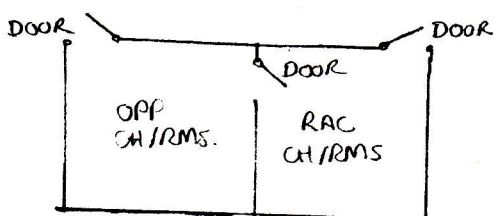 DOOR
DOOR
DOOR
OPP
CH/RMS.
RAC
CH/RMS